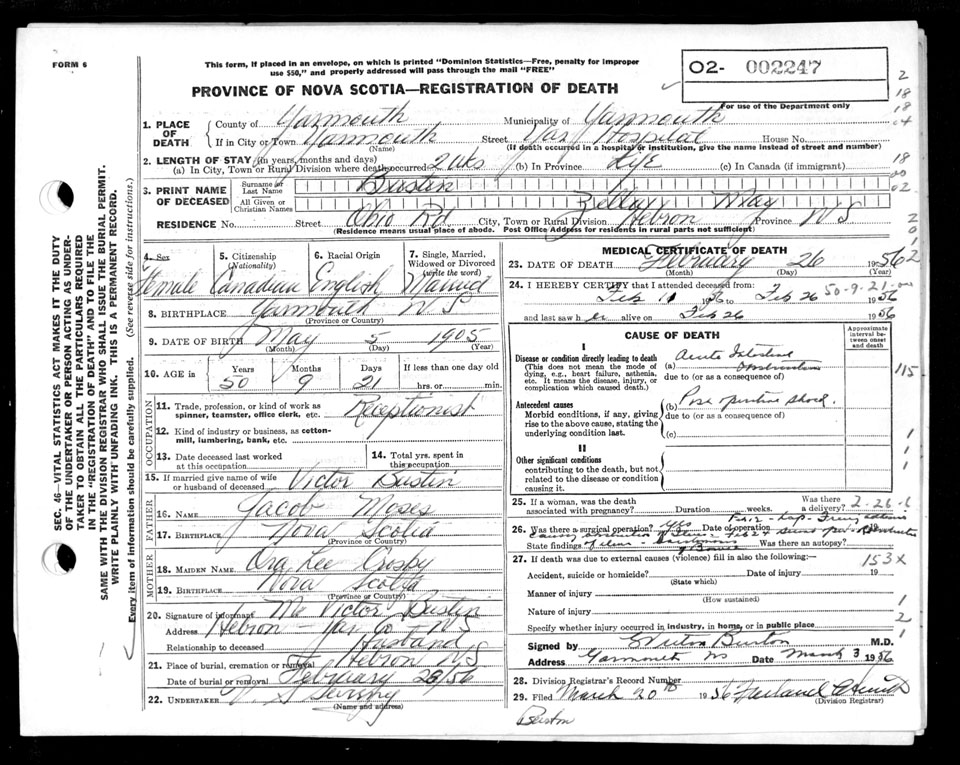 FORM 6
This form, if placed in an envelope, on which is printed "Dominion Statistics—Free, penalty for improper
use $50," and properly addressed will pass through the mail "FREE"
O2- 002247
PROVINCE OF NOVA SCOTIA—REGISTRATION OF DEATH
For use of the Department only
1. PLACE OF DEATH
County of Yarmouth Municipality of Yarmouth
If in City or Town Yarmouth Street Yar Hospital House No.
(Name) (If death occurred in a hospital or institution, give the name instead of street and number)
2. LENGTH OF STAY (in years, months and days)
(a) In City, Town or Rural Division where death occurred 2 wks (b) In Province Life (c) In Canada (if immigrant)
3. PRINT NAME OF DECEASED
Surname or Last Name Bustin
All Given or Christian Names Zella May
RESIDENCE No. Street Ohio Rd City, Town or Rural Division Hebron Province NS
(Residence means usual place of abode. Post Office Address for residents in rural parts not sufficient)
4. Sex 5. Citizenship (Nationality) 6. Racial Origin 7. Single, Married, Widowed or Divorced (write the word)
Female Canadian English Married
8. BIRTHPLACE Yarmouth NS
(Province or Country)
9. DATE OF BIRTH May 5 1905
(Month) (Day) (Year)
10. AGE in Years Months Days If less than one day old
50 9 21 hrs. or min.
OCCUPATION
11. Trade, profession, or kind of work as spinner, teamster, office clerk, etc. Receptionist
12. Kind of industry or business, as cotton-mill, lumbering, bank, etc.
13. Date deceased last worked at this occupation
14. Total yrs. spent in this occupation
15. If married give name of wife or husband of deceased Victor Bustin
FATHER
16. Name Jacob Moses
17. Birthplace Nova Scotia
MOTHER
18. MAIDEN NAME Ora Lee Crosby
19. BIRTHPLACE Nova Scotia
(Province or Country)
20. Signature of informant Mr Victor Bustin
Address Hebron Yar Co NS
Relationship to deceased Husband
21. Place of burial, cremation or removal Hebron NS
Date of burial or removal February 29/56
22. UNDERTAKER
(Name and address)
MEDICAL CERTIFICATE OF DEATH
23. DATE OF DEATH February 26 1956
(Month) (Day) (Year)
24. I HEREBY CERTIFY that I attended deceased from:
Feb 11 1956 to Feb 26 1956
50-9-21
and last saw her alive on Feb 26 1956
CAUSE OF DEATH
Approximate interval between onset and death
I
Disease or condition directly leading to death
(This does not mean the mode of dying, e.g., heart failure, asthenia, etc. It means the disease, injury, or complication which caused death.)
(a) Acute Intestine Obstruction
due to (or as a consequence of)
115
Antecedent causes
Morbid conditions, if any, giving rise to the above cause, stating the underlying condition last.
(b) Post operative shock.
due to (or as a consequence of)
(c)
II
Other significant conditions
contributing to the death, but not related to the disease or condition causing it.
25. If a woman, was the death associated with pregnancy? Duration weeks. Was there a delivery?
2-26-6
26. Was there a surgical operation? Yes Date of operation
State findings Was there an autopsy?
27. If death was due to external causes (violence) fill in also the following:—
153X
Accident, suicide or homicide? Date of injury 19
(State which)
Manner of injury
(How sustained)
Nature of injury
Specify whether injury occurred in industry, in home, or in public place
Signed by Burton M.D.
Address Yarmouth NS Date March 3 1956
28. Division Registrar's Record Number
29. Filed March 20th 1956
(Division Registrar)
SEC. 46—VITAL STATISTICS ACT MAKES IT THE DUTY
OF THE UNDERTAKER OR PERSON ACTING AS UNDER-
TAKER TO OBTAIN ALL THE PARTICULARS REQUIRED
IN THE "REGISTRATION OF DEATH" AND TO FILE THE
SAME WITH THE DIVISION REGISTRAR WHO SHALL ISSUE THE BURIAL PERMIT.
WRITE PLAINLY WITH UNFADING INK. THIS IS A PERMANENT RECORD.
Every item of information should be carefully supplied. (See reverse side for instructions.)